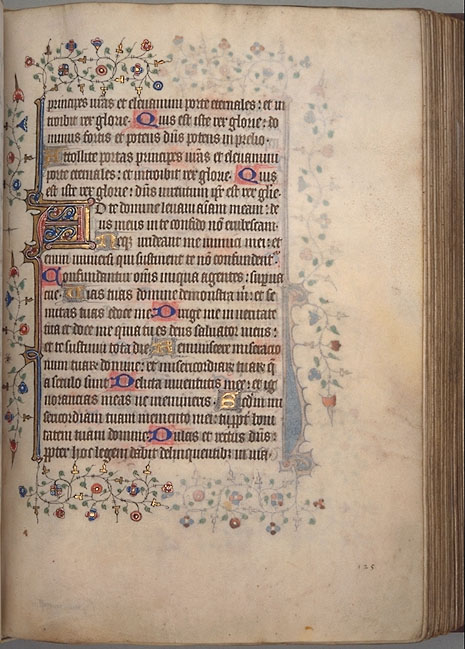 principes vr̄as et eleuamini porte eternales: et in
troibit rex glorie. Quis est iste rex glorie: do
minus fortis et potens dn̄s potens in prelio.
Attollite portas principes vr̄as et eleuamini
porte eternales: et introibit rex glorie. Quis
est iste rex glorie: dn̄s uirtutum ip̄e est rex glie.
Ad te domine leuaui aīam meam: de
us meus in te confido nō erubescam.
Neq; irrideant me inimici mei: et
enim uniuersi qui sustinent te nō confundent'.
Confundantur om̄s iniqua agentes: superua
cue. Uias tuas domine demonstra m̄: et se
mitas tuas edoce me. Dirige me in ueritate
tua et doce me quia tu es deus saluator meus:
et te sustinui tota die. Reminiscere miseracio
num tuarum domine: et misericordiarum tuarum q̄
a seculo sunt. Delicta iuuentutis mee: et ig
norancias meas ne memineris. Secdm mi
sericordiam tuam memento mei: tu ppt' boni
tatem tuam domine. Dulcis et rectus dn̄s:
ppter hoc legem dabit delinquentibus in uia.
125